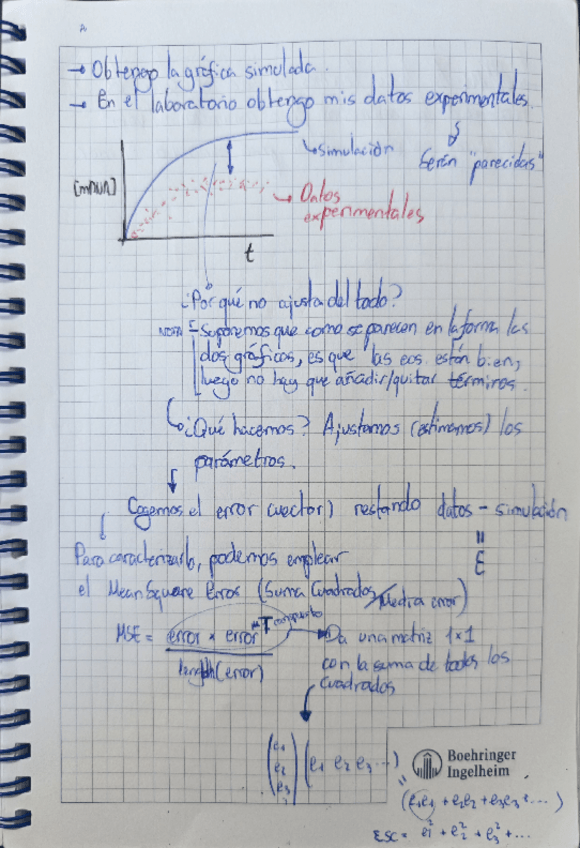 → Obtengo la gráfica simulada.
→ En el laboratorio obtengo mis datos experimentales
Serán "parecidas"
simulación
[mRNA]
→ Datos
experimentales
t
¿Por qué no ajusta del todo?
NOTA: Suponemos que como se parecen en la forma las
dos gráficas, es que las ecs. están bien,
luego no hay que añadir/quitar términos.
¿Qué hacemos? Ajustamos (estimamos) los
parámetros.
Cogemos el error (vector) restando datos - simulación
"
ε
Para caracterizarlo, podemos emplear
el Mean Square Error (Suma Cuadrados/Media error)
MSE = error * error^T
length(error)
→ Da una matriz 1x1
con la suma de todos los
cuadrados
(e1 e2 e3) (e1 e2 e3 ...)
"
(e1e1 + e2e2 + e3e3 + ...)
ESC = e1² + e2² + e3² + ...
Boehringer
Ingelheim